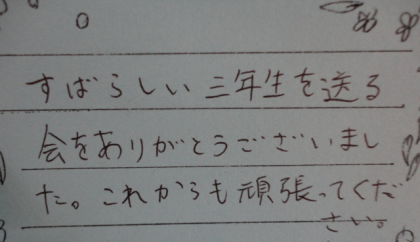 すばらしい三年生を送る
会をありがとうございまし
た。これからも頑張ってくだ
さい。